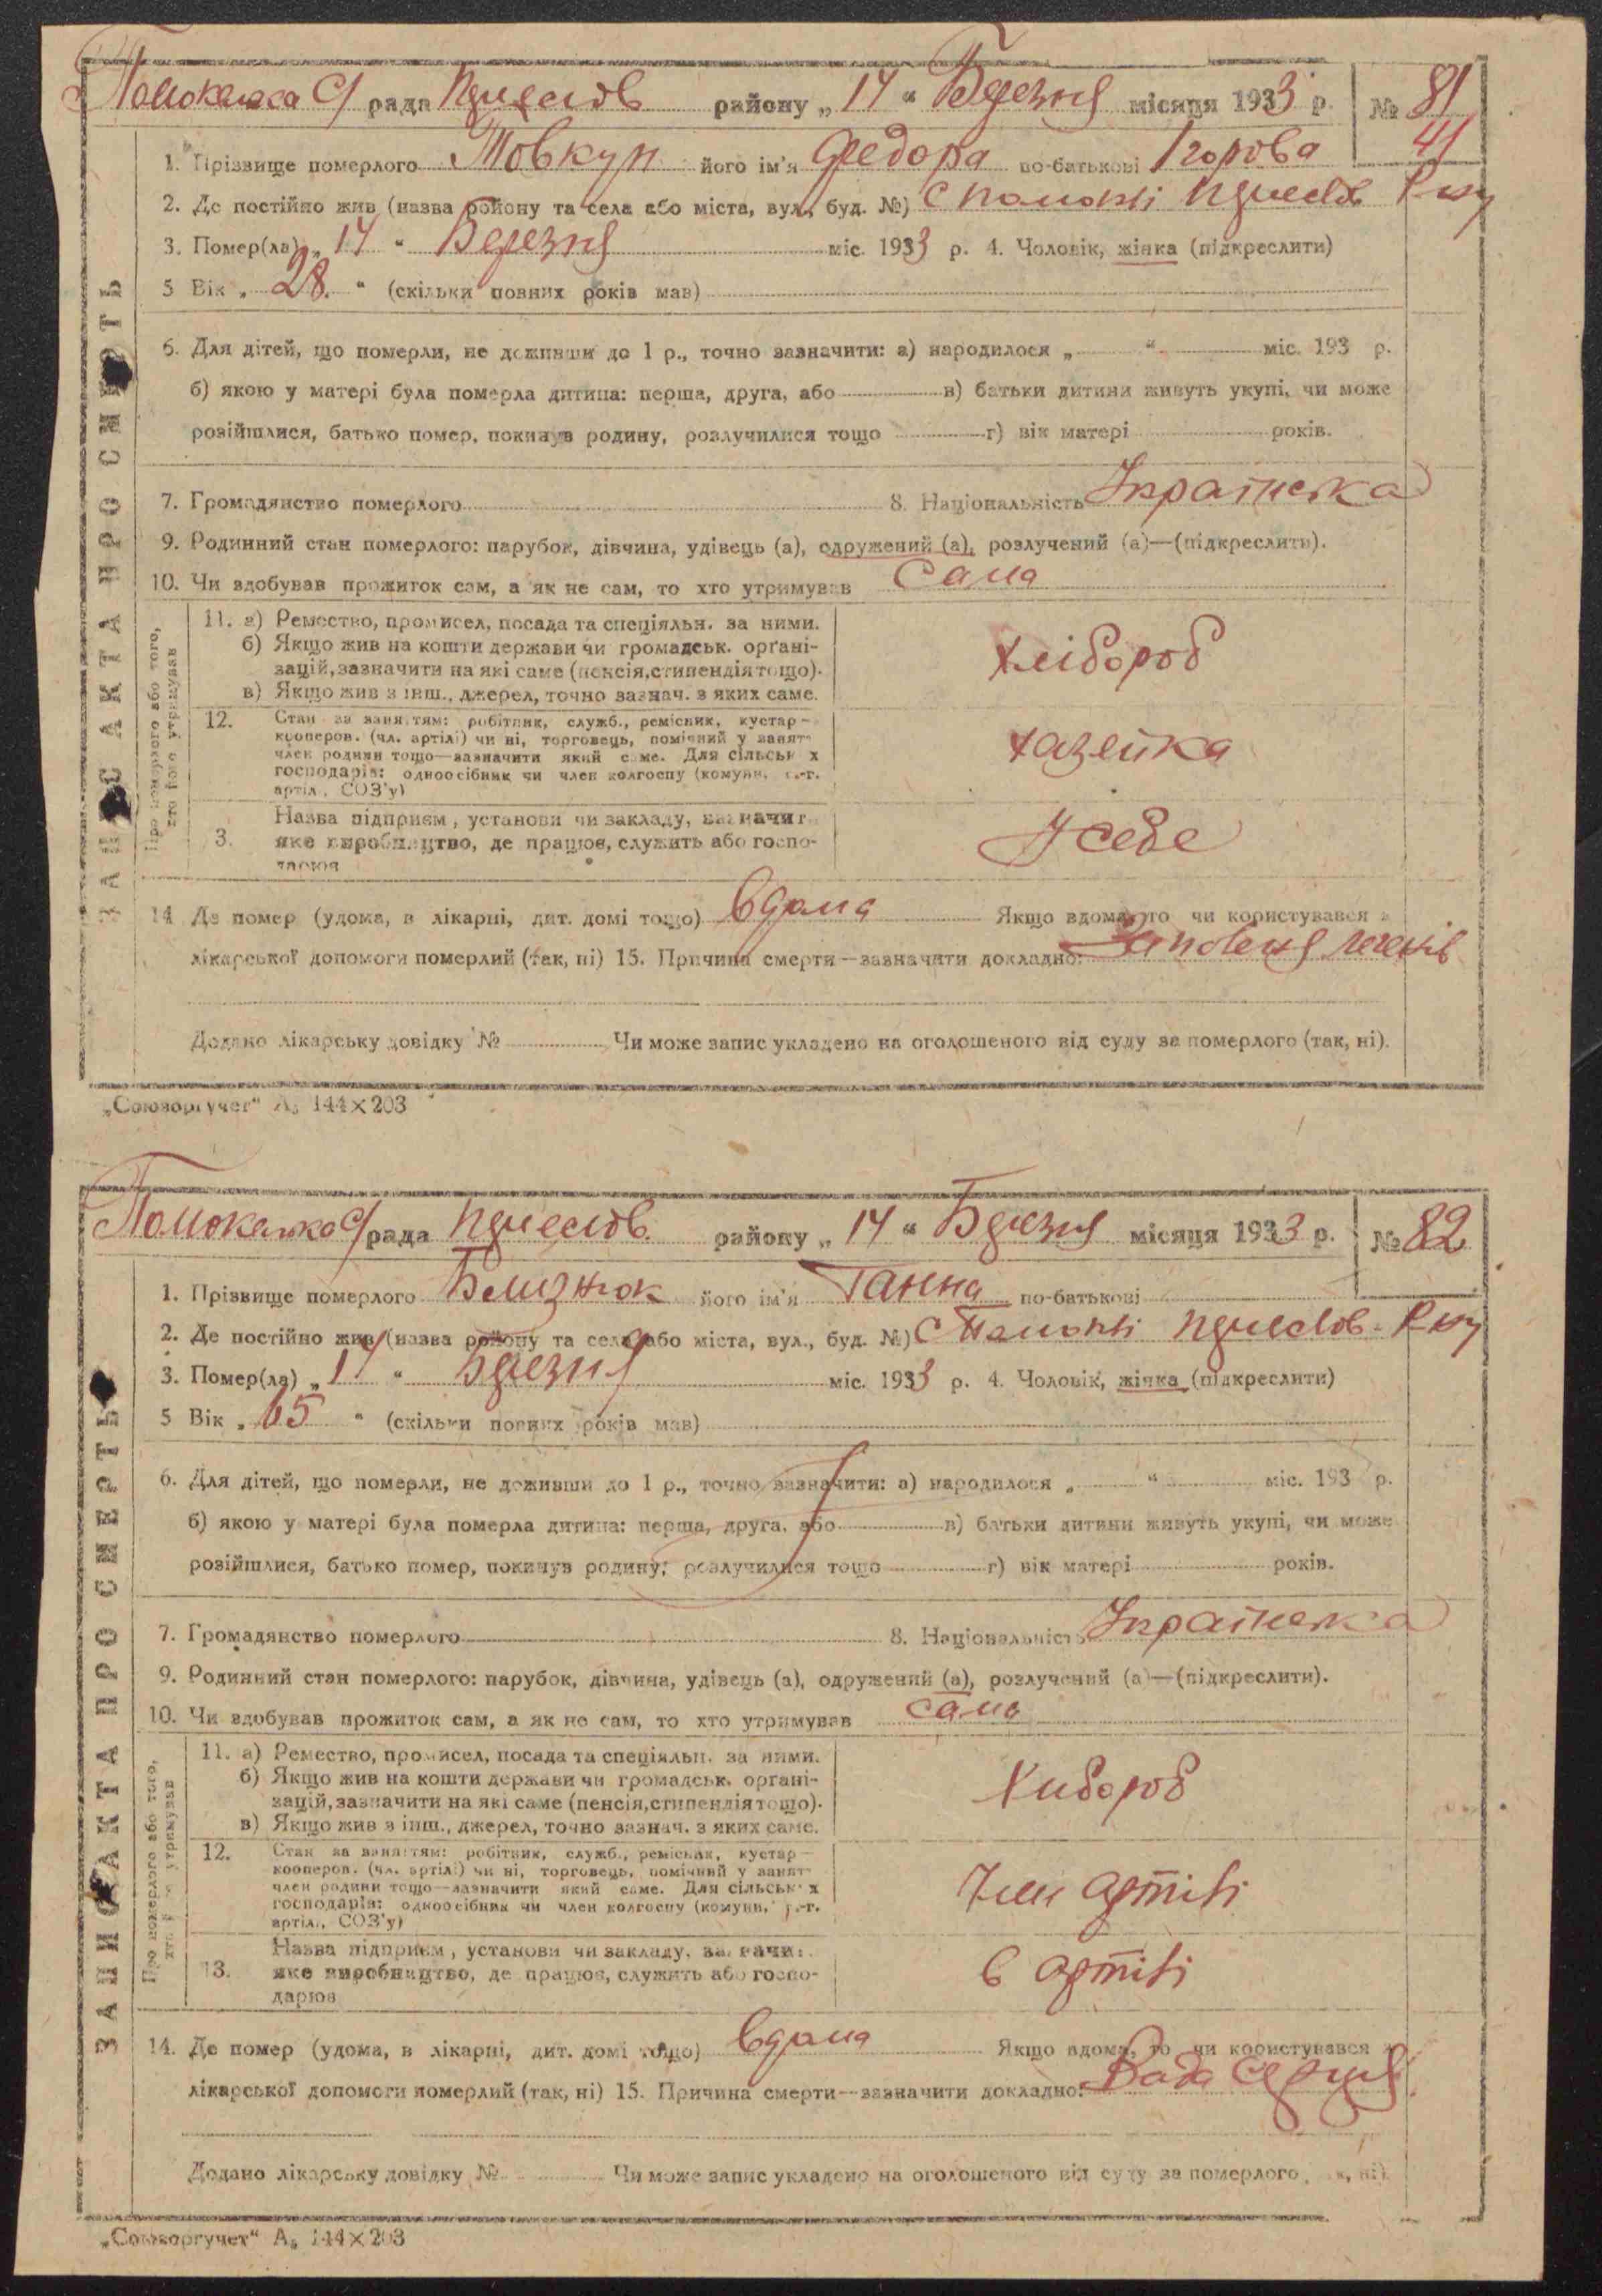 рада району „ 14 “ Березня місяця 1933 р. № 81
41
1. Прізвище померлого Товкун його ім'я Федора по-батькові
2. Де постійно жив (назва району та села або міста, вул., буд. №) с
3. Помер(ла) „ 14 “ Березня міс. 1933 р. 4. Чоловік, жінка (підкреслити)
5 Вік „ 28 “ (скільки повних років мав)
6. Для дітей, що померли, не доживши до 1 р., точно зазначити: а) народилося „ “ міс. 193 р.
б) якою у матері була померла дитина: перша, друга, або в) батьки дитини живуть укупі, чи може
розійшлися, батько помер, покинув родину, розлучилися тощо г) вік матері років.
7. Громадянство померлого 8. Національність Українська
9. Родинний стан померлого: парубок, дівчина, удівець (а), одружений (а), розлучений (а)—(підкреслити).
10. Чи здобував прожиток сам, а як не сам, то хто утримував Сама
ЗАПИС АКТА ПРО СМЕРТЬ
Про померлого або того,
хто його утримував
11. а) Ремество, промисел, посада та спеціяльн. за ними.
б) Якщо жив на кошти держави чи громадськ. орґані-
зацій, зазначити на які саме (пенсія, стипендія тощо).
в) Якщо жив з інш., джерел, точно зазнач. з яких саме.
Хлібороб
12. Стан за заняттям: робітник, служб., ремісник, кустар —
кооперов. (чл. артілі) чи ні, торговець, помічний у занят-
член родини тощо—зазначити який саме. Для сільських
господарів: одноосібник чи член колгоспу (комуни, с.-г.
артіл., СОЗ'у)
хазейка
3. Назва підприєм, установи чи закладу, зазначити
яке виробництво, де працює, служить або госпо-
дарює
У себе
14 Де помер (удома, в лікарні, дит. домі тощо) вдома Якщо вдома, то чи користувався з
лікарської допомоги померлий (так, ні) 15. Причина смерти—зазначити докладно: легенів
Додано лікарську довідку № Чи може запис укладено на оголошеного від суду за померлого (так, ні).
„Союзоргучет“ А₅ 144×203
рада району „ 14 “ Березня місяця 1933 р. № 82
1. Прізвище померлого його ім'я Ганна по-батькові
2. Де постійно жив (назва району та села або міста, вул., буд. №) с
3. Помер(ла) „ 14 “ Березня міс. 1933 р. 4. Чоловік, жінка (підкреслити)
5 Вік „ 65 “ (скільки повних років мав)
6. Для дітей, що померли, не доживши до 1 р., точно зазначити: а) народилося „ “ міс. 193 р.
б) якою у матері була померла дитина: перша, друга, або в) батьки дитини живуть укупі, чи може
розійшлися, батько помер, покинув родину, розлучилися тощо г) вік матері років.
7. Громадянство померлого 8. Національність Українська
9. Родинний стан померлого: парубок, дівчина, удівець (а), одружений (а), розлучений (а)—(підкреслити).
10. Чи здобував прожиток сам, а як не сам, то хто утримував сама
ЗАПИС АКТА ПРО СМЕРТЬ
Про померлого або того,
хто його утримував
11. а) Ремество, промисел, посада та спеціяльн. за ними.
б) Якщо жив на кошти держави чи громадськ. орґані-
зацій, зазначити на які саме (пенсія, стипендія тощо).
в) Якщо жив з інш., джерел, точно зазнач. з яких саме.
Хлібороб
12. Стан за заняттям: робітник, служб., ремісник, кустар —
кооперов. (чл. артілі) чи ні, торговець, помічний у занят-
член родини тощо—зазначити який саме. Для сільських
господарів: одноосібник чи член колгоспу (комуни, с.-г.
артіл., СОЗ'у)
Член артілі
13. Назва підприєм, установи чи закладу, зазначити
яке виробництво, де працює, служить або госпо-
дарює
в артілі
14. Де помер (удома, в лікарні, дит. домі тощо) вдома Якщо вдома, то чи користувався з
лікарської допомоги померлий (так, ні) 15. Причина смерти—зазначити докладно: Вада серця
Додано лікарську довідку № Чи може запис укладено на оголошеного від суду за померлого
„Союзоргучет“ А₅ 144×203